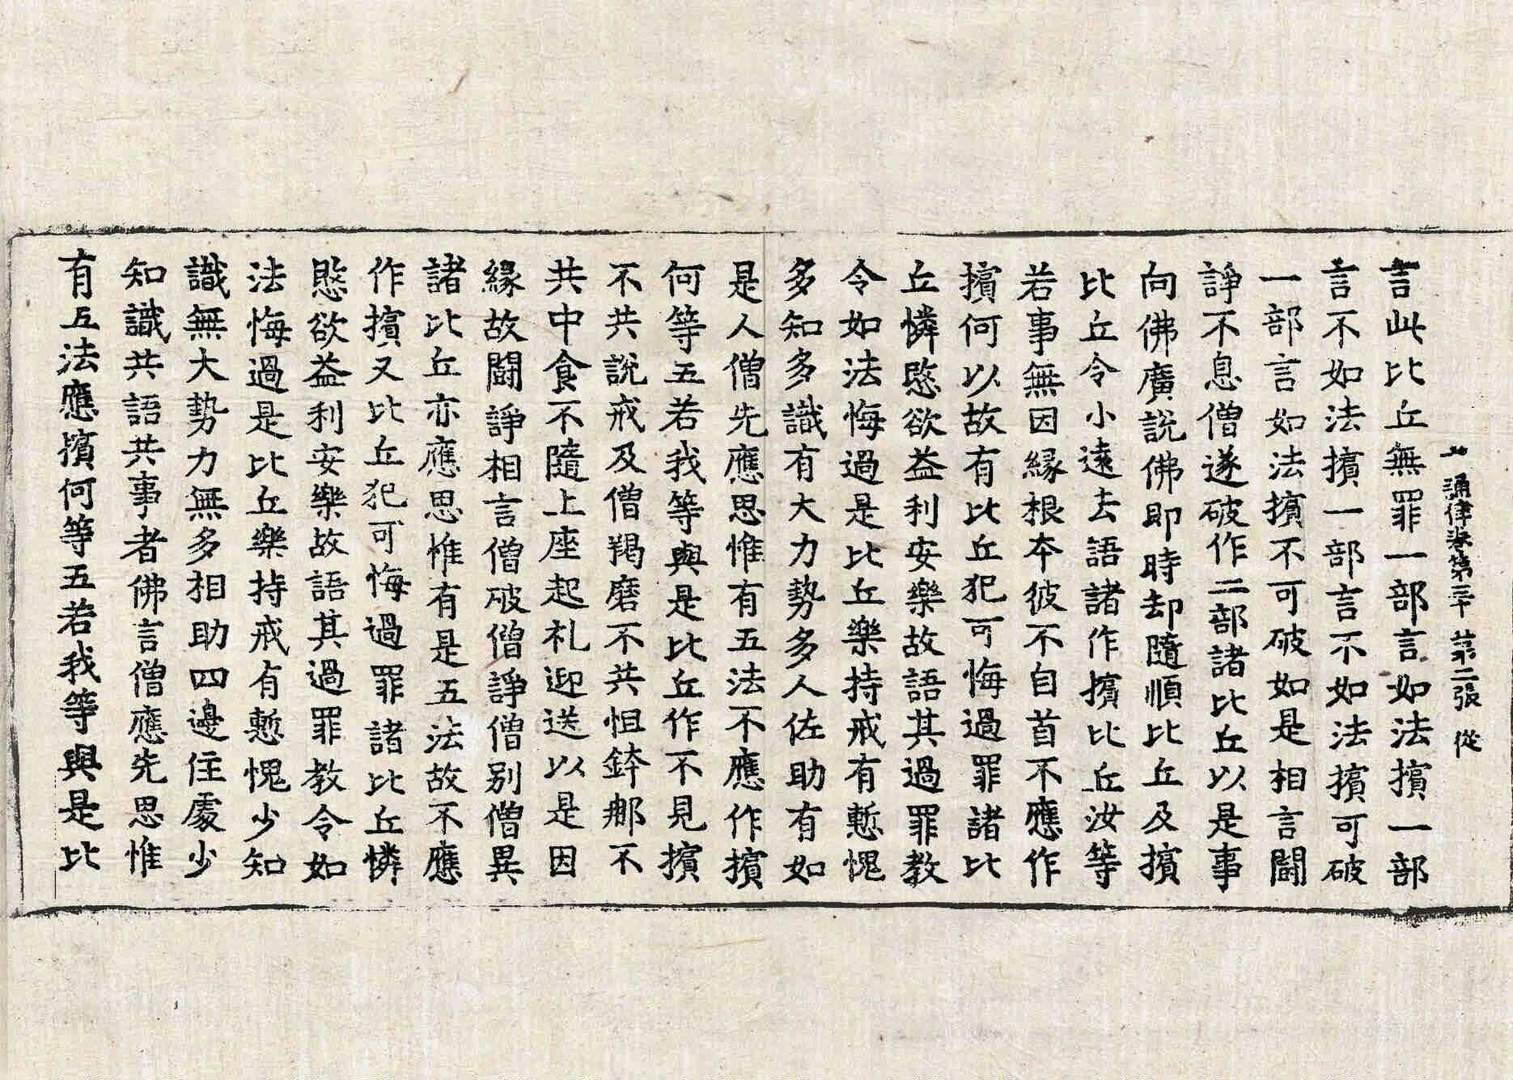 十誦律卷第三十 第二張 從
言此比丘無罪一部言如法擯一部
言不如法擯一部言不如法擯可破
一部言如法擯不可破如是相言闘
諍不息僧遂破作二部諸比丘以是事
向佛廣說佛即時却隨順比丘及擯
比丘令小遠去語諸作擯比丘汝等
若事無因緣根夲彼不自首不應作
擯何以故有比丘犯可悔過罪諸比
丘憐愍欲益利安樂故語其過罪教
令如法悔過是比丘樂持戒有慙愧
多知多識有大力勢多人佐助有如
是人僧先應思惟有五法不應作擯
何等五若我等與是比丘作不見擯
不共說戒及僧羯磨不共怛鉢那不
共中食不隨上座起礼迎送以是因
緣故闘諍相言僧破僧諍僧別僧異
諸比丘亦應思惟有是五法故不應
作擯又比丘犯可悔過罪諸比丘憐
愍欲益利安樂故語其過罪教令如
法悔過是比丘樂持戒有慙愧少知
識無大勢力無多相助四邊住處少
知識共語共事者佛言僧應先思惟
有五法應擯何等五若我等與是比